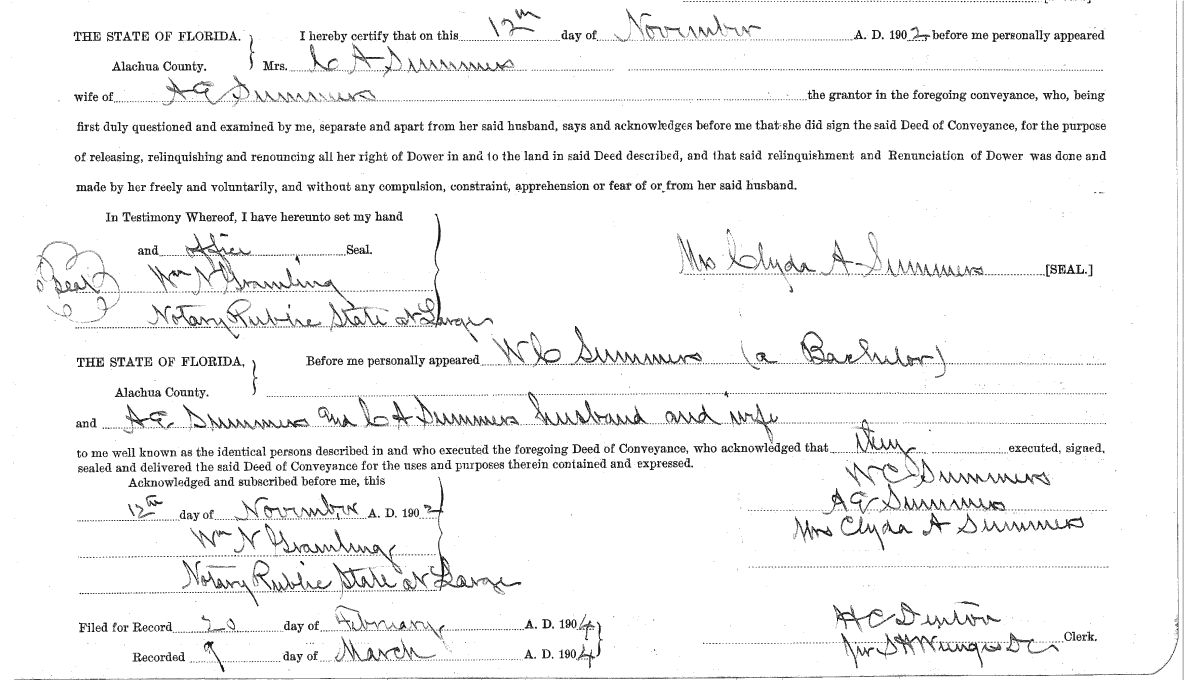 THE STATE OF FLORIDA. } I hereby certify that on this 12th day of November A. D. 1902 before me personally appeared
Alachua County. Mrs. C A Summers
wife of A E Summers the grantor in the foregoing conveyance, who, being
first duly questioned and examined by me, separate and apart from her said husband, says and acknowledges before me that she did sign the said Deed of Conveyance, for the purpose
of releasing, relinquishing and renouncing all her right of Dower in and to the land in said Deed described, and that said relinquishment and Renunciation of Dower was done and
made by her freely and voluntarily, and without any compulsion, constraint, apprehension or fear of or from her said husband.
In Testimony Whereof, I have hereunto set my hand
and office Seal.
Mrs Clyda A Summers [SEAL.]
Seal Wm N Gramling
Notary Public State at Large
THE STATE OF FLORIDA, } Before me personally appeared W C Summers (a Bachelor)
Alachua County.
and A E Summers and C A Summers husband and wife
to me well known as the identical persons described in and who executed the foregoing Deed of Conveyance, who acknowledged that they executed, signed,
sealed and delivered the said Deed of Conveyance for the uses and purposes therein contained and expressed.
Acknowledged and subscribed before me, this
W C Summers
12th day of November A. D. 1902
A E Summers
Wm N Gramling
Mrs Clyda A Summers
Notary Public State at Large
Filed for Record 20 day of February A. D. 1904
H C Denton Clerk.
Recorded 9 day of March A. D. 1904